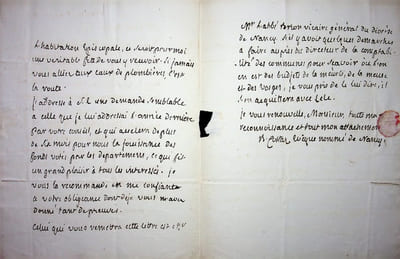 l'habitation Episcopale, ce seroit pour moi
une veritable fete de vous y recevoir. Si jamais
vous alliez aux eaux de plombieres, c'est
la route.
j'addresse à S. E. une demande semblable
a celle que je lui addressai l'année derniere
par votre conseil, et qui accelera de plus
de six mois pour nous la jouissance des
fonds votés par les departemens, ce qui fit
un grand plaisir à tous les interessés. je
vous la recommande en me confiant
a votre obligeance dont deja vous m'avez
donné tant de preuves.
Celui qui vous remettra cette lettre est
Mr. L'abbé vicaire général du diocèse
de Nancy. S'il y avoit quelques demarches
a faire auprès du directeur de la comptabi-
lité des communes pour scavoir où l'on
en est des budgets de la meurthe, de la meuse
et des vosges, je vous prie de le lui dire, il
s'en acquittera avec zele.
je vous renouvelle, Monsieur, toute ma
reconnoissance et tout mon attachement
évêque nommé de Nancy.